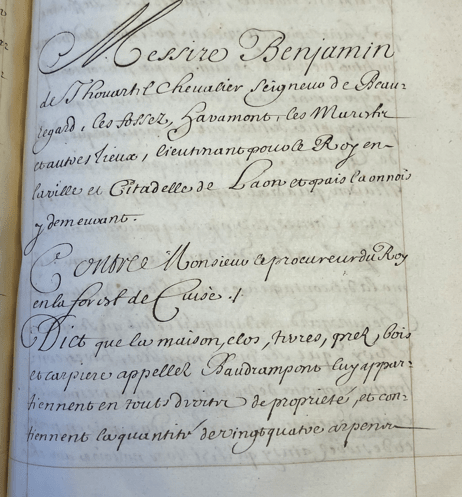 Messire Benjamin
de Thouartz Chevalier Seigneur de Beau-
regard, les fossez, Havamont, les
et autres lieux, lieutenant pour le Roy en
la ville et Citadelle de Laon et pais laonnois
y demeurant.
Contre Monsieur le procureur du Roy
en la forest de Cuise ./.
Dict que la maison, clos, terres, prez, bois
et carpiere appellez Baudrampont luy appar-
tiennent en touts droitz de propriété, et con-
tiennent la quantité de vingt quatre arpens